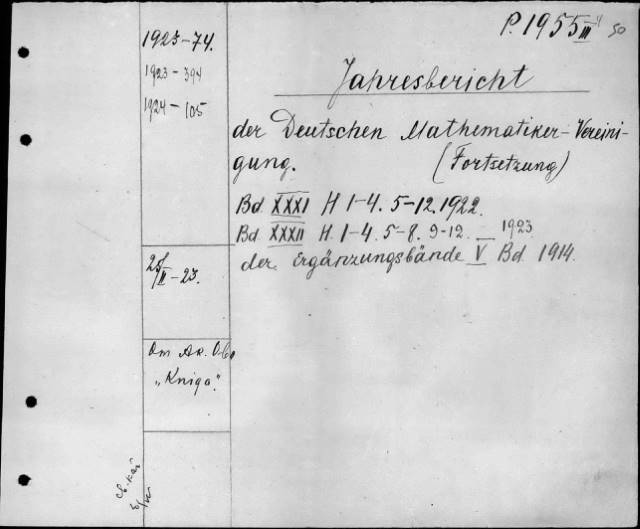 P. 1955 III 50
1923-74.
1923-394
1924-105
Jahresbericht
der Deutschen Mathematiker-Vereini-
gung. (Fortsetzung)
Bd XXXI H 1-4. 5-12. 1922.
Bd XXXII H. 1-4. 5-8. 9-12. 1923
der Ergänzungsbände V Bd 1914.
"Kniga".